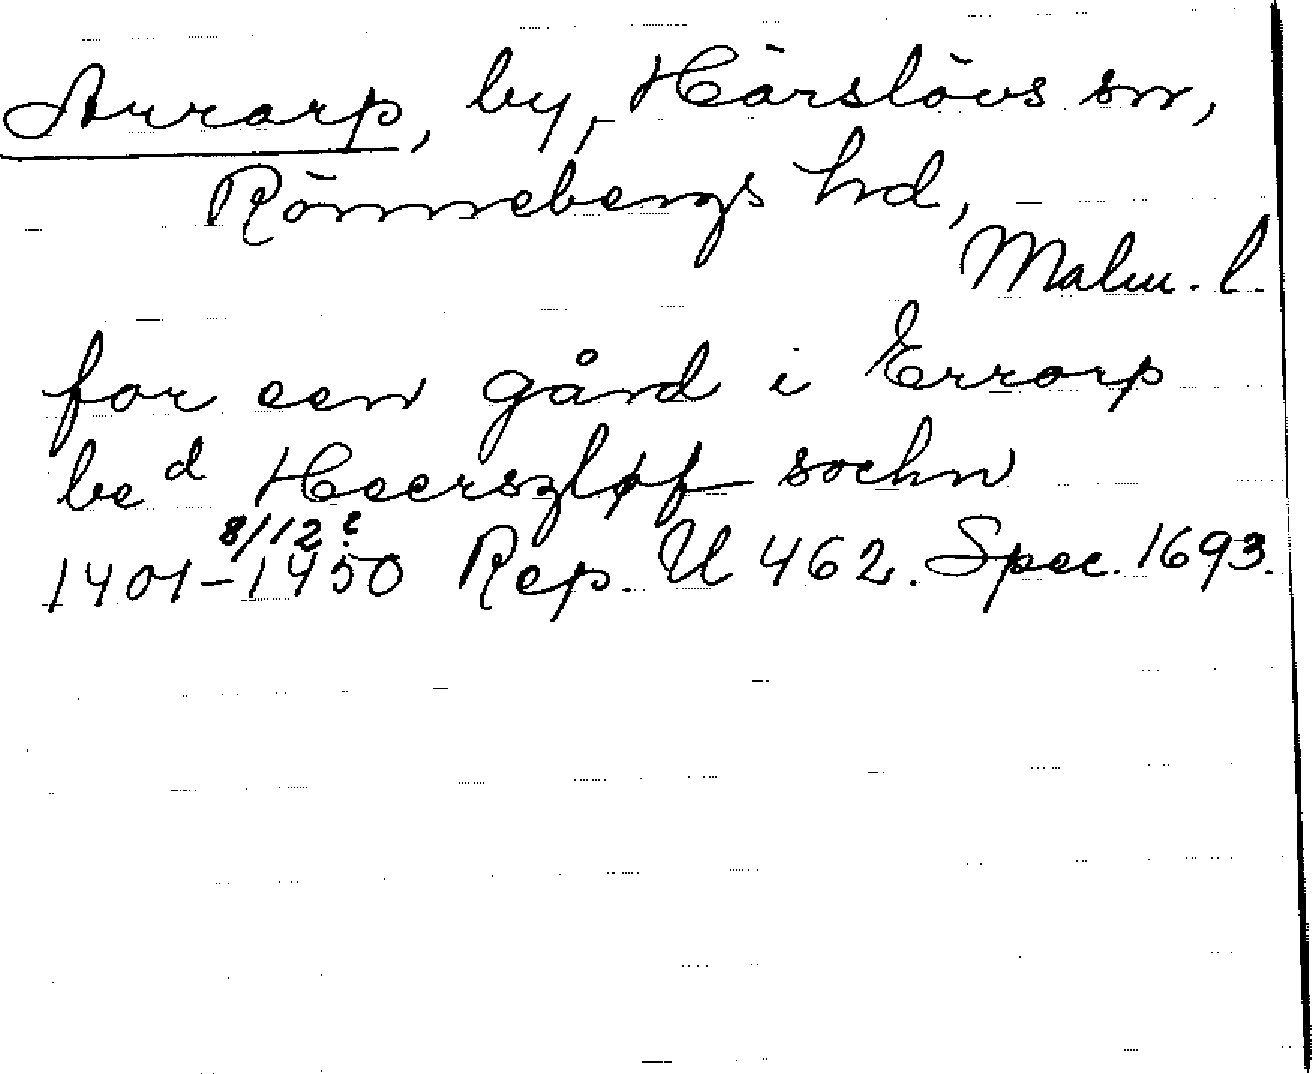 Arrarp, by, Härslövs sn,
Rönnebergs hd,
Malm. l.
for een gård i Errorp
ved Heerszløf sochn
8/12?
1401-1450 Rep. U 462. Spec. 1693.